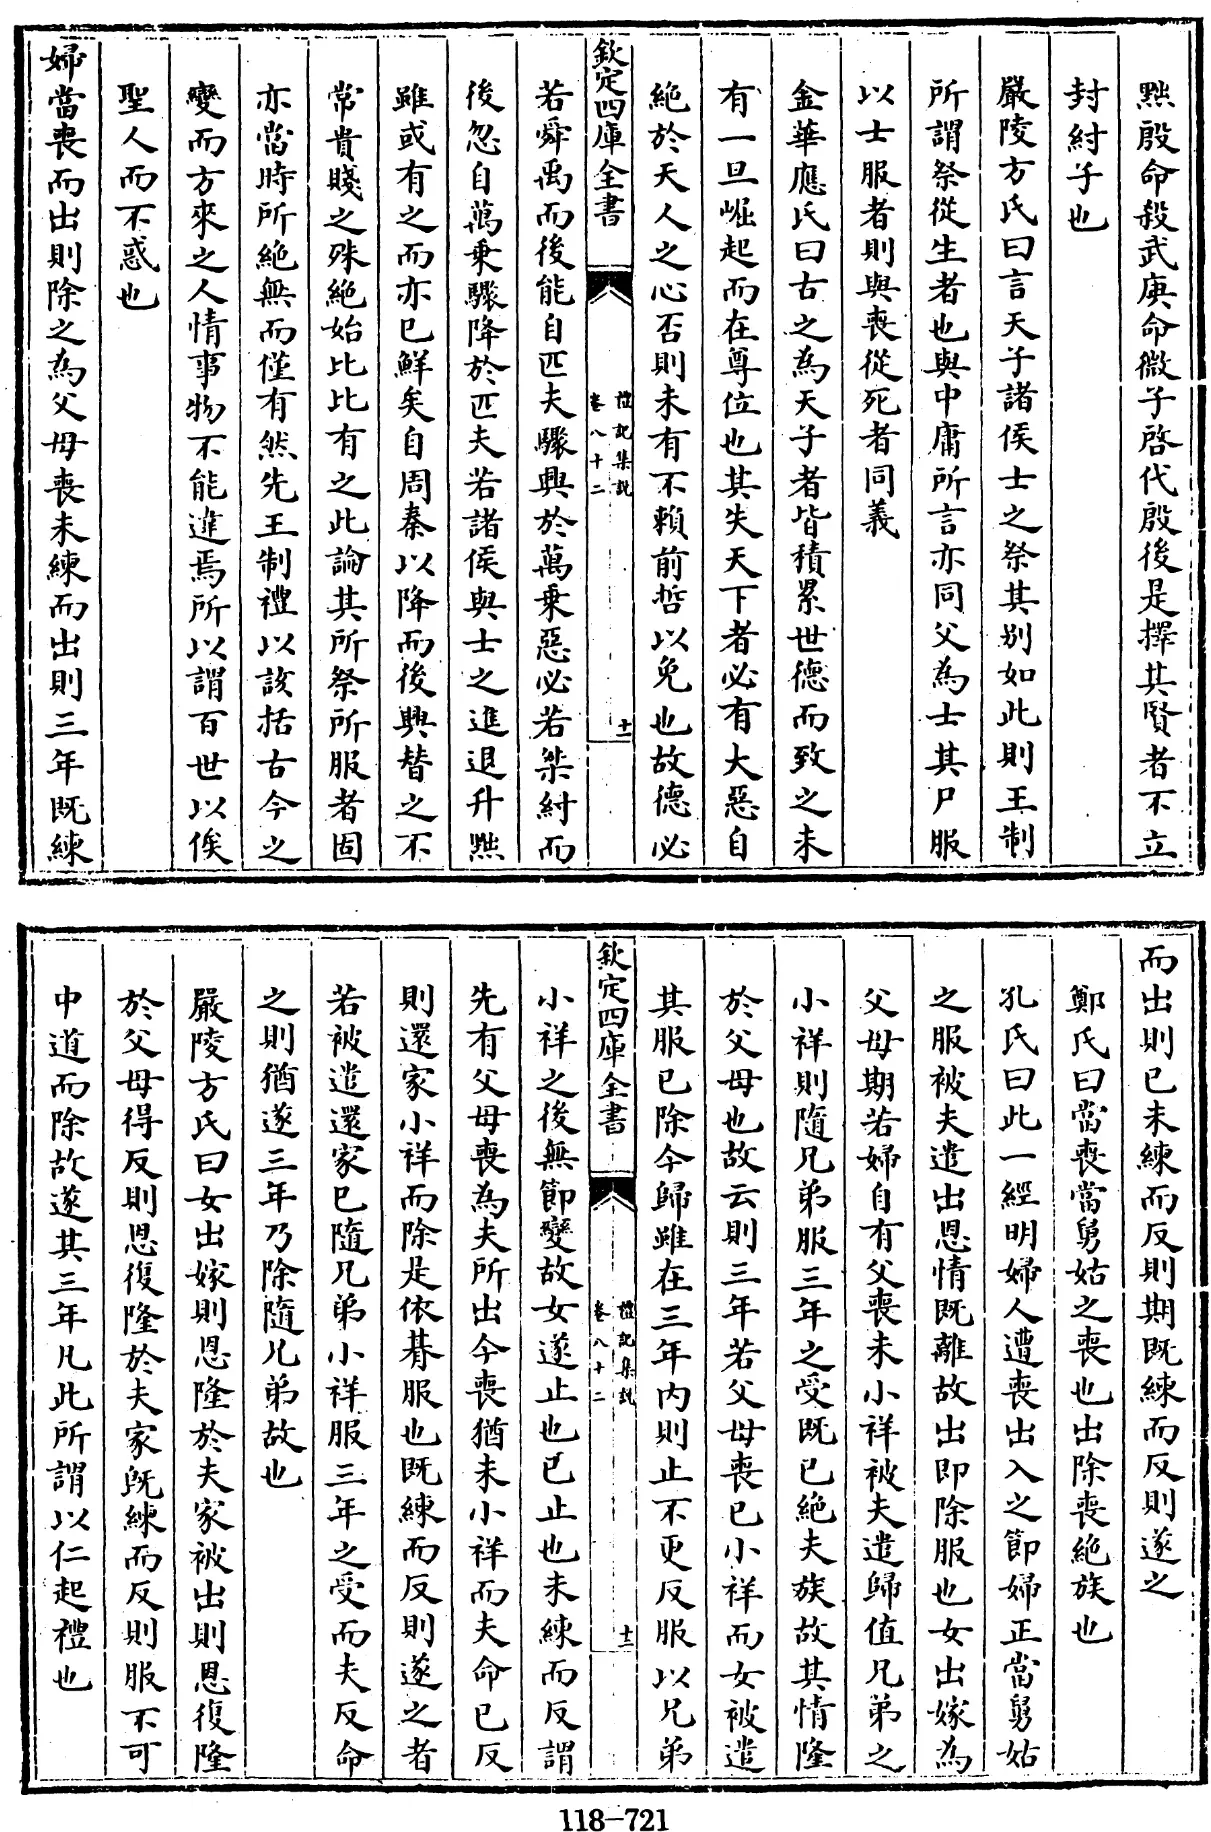 黜殷命殺武庚命微子啓代殷後是擇其賢者不立
封紂子也
嚴陵方氏曰言天子諸侯士之祭其别如此則王制
所謂祭從生者也與中庸所言亦同父為士其尸服
以士服者則與喪從死者同義
金華應氏曰古之為天子者皆積累世德而致之未
有一旦崛起而在尊位也其失天下者必有大惡自
絶於天人之心否則未有不賴前哲以免也故德必
欽定四庫全書
禮記集説
卷八十二
十二
若舜禹而後能自匹夫驟興於萬乗惡必若桀紂而
後忽自萬乗驟降於匹夫若諸侯與士之進退升黜
雖或有之而亦已鮮矣自周秦以降而後興替之不
常貴賤之殊絶始比比有之此論其所祭所服者固
亦當時所絶無而僅有然先王制禮以該括古今之
變而方來之人情事物不能違焉所以謂百世以俟
聖人而不惑也
婦當喪而出則除之為父母喪未練而出則三年既練
而出則已未練而反則期既練而反則遂之
鄭氏曰當喪當舅姑之喪也出除喪絶族也
孔氏曰此一經明婦人遭喪出入之節婦正當舅姑
之服被夫遣出恩情既離故出即除服也女出嫁為
父母期若婦自有父喪未小祥被夫遣歸值兄弟之
小祥則隨兄弟服三年之受既已絶夫族故其情隆
於父母也故云則三年若父母喪已小祥而女被遣
其服已除今歸雖在三年内則止不更反服以兄弟
欽定四庫全書
禮記集説
卷八十二
十三
小祥之後無節變故女遂止也已止也未練而反謂
先有父母喪為夫所出今喪猶未小祥而夫命已反
則還家小祥而除是依朞服也既練而反則遂之者
若被遣還家已隨兄弟小祥服三年之受而夫反命
之則猶遂三年乃除隨兄弟故也
嚴陵方氏曰女出嫁則恩隆於夫家被出則恩復隆
於父母得反則恩復隆於夫家既練而反則服不可
中道而除故遂其三年凡此所謂以仁起禮也
118-721